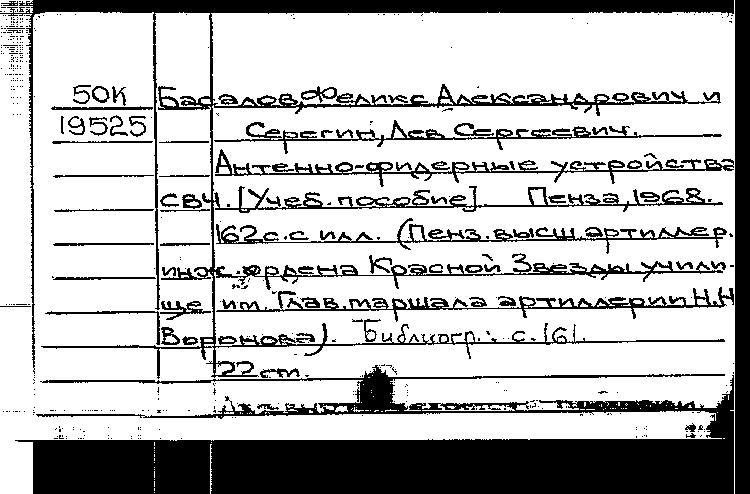 50К Басалов, Феликс Александрович и
19525 Серегин, Лев Сергеевич.
Антенно-фидерные устройства
СВЧ. [Учеб. пособие]. Пенза, 1968.
162 с. с илл. (Пенз. высш. артиллер.
инж. ордена Красной Звезды учили-
ще им. Глав. маршала артиллерии Н.Н
Воронова). Библиогр.: с. 161.
22 см.